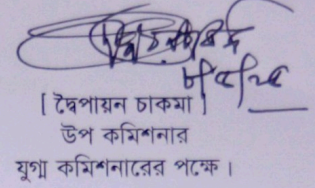 ৮/৫/২৫
[ দ্বৈপায়ন চাকমা ]
উপ কমিশনার
যুগ্ম কমিশনারের পক্ষে ।